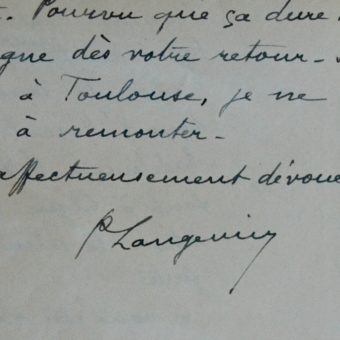 . Pourvu que ça dure.
gne dès votre retour -
à Toulouse, je ne
à remonter -
affectueusement dévoué
PLangevin